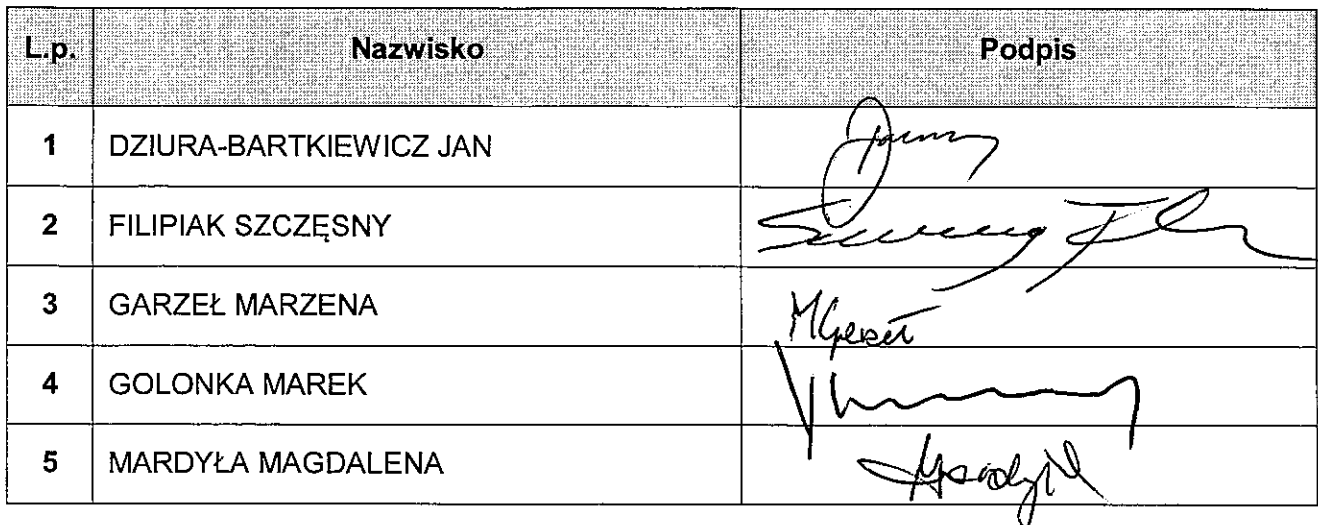 L.p. Nazwisko Podpis
1 DZIURA-BARTKIEWICZ JAN
2 FILIPIAK SZCZĘSNY
3 GARZEŁ MARZENA
4 GOLONKA MAREK
5 MARDYŁA MAGDALENA